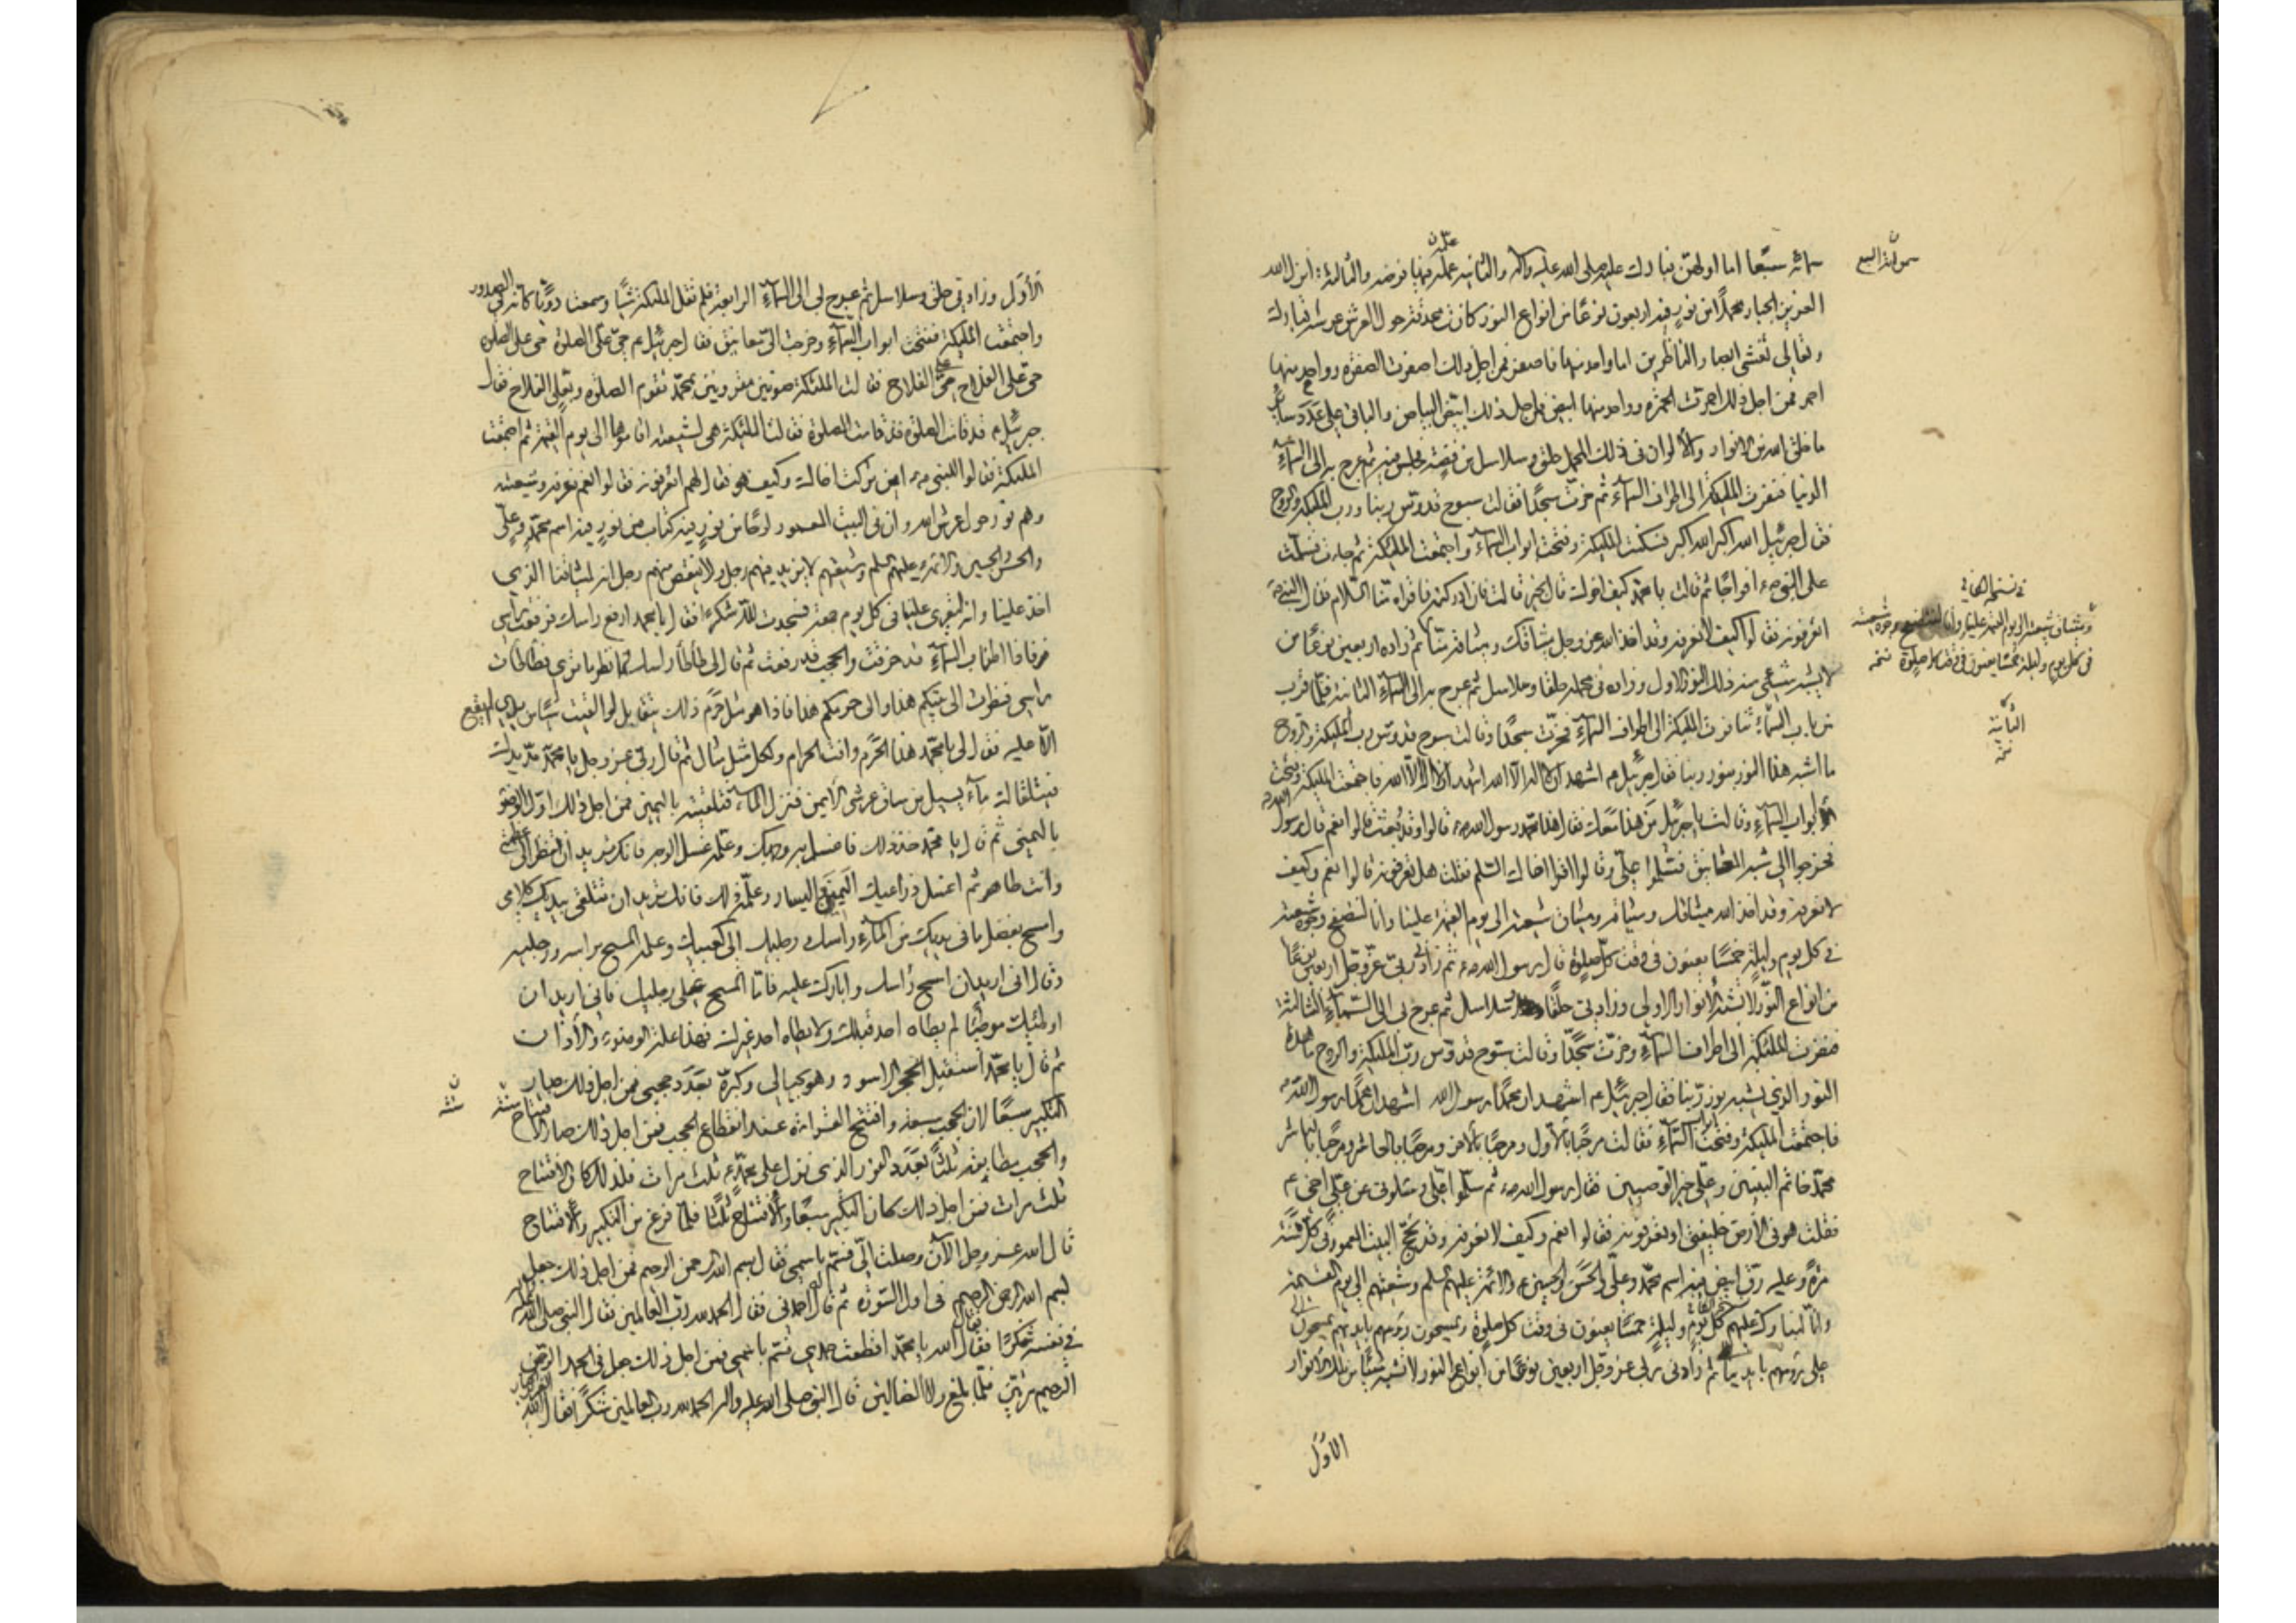 سمائه سبعا اما اولهن فبارك عليه صلى الله عليه واله والثانية علمه فيها فرضه والثالثة انزل الله
العزيز الجبار محملا من نور فيه اربعون نوعا من انواع النور كانت محدقة حول العرش عرشه تبارك
وتعالى تغشى ابصار الناظرين اما واحد منها فاصفر فمن اجل ذلك اصفرت الصفرة وواحد منها
احمر فمن اجل ذلك احمرت الحمرة وواحد منها ابيض فمن اجل ذلك ابيض البياض والباقي على عدد سائر
ما خلق الله من الانوار والالوان في ذلك المحمل حلق وسلاسل من فضة فجلس فيه ثم عرج به الى السماء
الدنيا فنفرت الملئكة الى اطراف السماء ثم خرت سجدا فقالت سبوح قدوس ربنا ورب الملئكة والروح
فقال جبرئيل الله اكبر الله اكبر فسكتت الملئكة وفتحت ابواب السماء واجتمعت الملئكة ثم جاءت فسلمت
على النبي ص افواجا ثم قالت يا محمد كيف اخوك قال بخير قالت فان ادركته فاقرأه منا السلام فقال النبي ص
اتعرفونه فقالوا كيف لا نعرفه وقد اخذ الله عز وجل ميثاقك وميثاقه منا ثم زاده اربعين نوعا من
لا يشبه شيء منه ذلك النور الاول وزاده في محمله حلقا وسلاسل ثم عرج به الى السماء الثانية فلما قرب
من باب السماء تنافرت الملئكة الى اطراف السماء وخرت سجدا وقالت سبوح قدوس رب الملئكة والروح
ما اشبه هذا النور بنور ربنا فقال جبرئيل ع اشهد ان لا اله الا الله اشهد ان لا اله الا الله فاجتمعت الملئكة وفتحت
ابواب السماء وقالت يا جبرئيل من هذا معك فقال هذا محمد رسول الله ص قالوا وقد بعث قالوا نعم قال رسول الله ص
فخرجوا الى شبه المعانيق فسلموا علي وقالوا اقرأ اخاك السلم فقلت هل تعرفونه قالوا نعم وكيف
لا نعرفه وقد اخذ الله ميثاقك وميثاقه وميثاق شيعته الى يوم القيمة علينا وانا لنتصفح وجوه شيعته
في كل يوم وليلة خمسا يعنون في وقت كل صلوة قال رسول الله ص ثم زادني ربي عز وجل اربعين نوعا
من انواع النور لا تشبه الانوار الاولى وزادني حلقا وسلاسل ثم عرج بي الى السماء الثالثة
فنفرت الملئكة الى اطراف السماء وخرت سجدا وقالت سبوح قدوس رب الملئكة والروح ما هذا
النور الذي يشبه نور ربنا فقال جبرئيل ع اشهد ان محمدا رسول الله اشهد ان محمدا رسول الله
فاجتمعت الملئكة وفتحت ابواب السماء فقالت مرحبا بالاول ومرحبا بالاخر ومرحبا بالحاشر ومرحبا بالناشر
محمد خاتم النبيين وعلي خير الوصيين فقال رسول الله ص ثم سلموا علي وسألوني عن علي اخي ع
فقلت هو في الارض خليفتي اوتعرفونه فقالوا نعم وكيف لا نعرفه وقد نحج البيت المعمور في كل سنة
مرة وعليه رق ابيض فيه اسم محمد وعلي والحسن والحسين ع والائمة عليهم السلم وشيعتهم الى يوم القيمة
وانا لنبارك عليهم كل يوم وليلة خمسا يعنون في وقت كل صلوة ويمسحون رؤسهم بايديهم يمسحون
على رؤسهم بايديهم ثم زادني ربي عز وجل اربعين نوعا من انواع النور لا تشبه شيئا من تلك الانوار
الاول
سمواته السبع
في نسخة
وميثاق شيعته الى يوم القيمة علينا وانا لنتصفح وجوه شيعته
في كل يوم وليلة خمسا يعنون في وقت كل صلوة
الاول وزادني حلق وسلاسل ثم عرج بي الى السماء الرابعة فلم تقل الملئكة شيئا وسمعت دويا كانه في الصدور
واجتمعت الملئكة ففتحت ابواب السماء وخرجت الي معانيق فقال جبرئيل ع حي على الصلوة حي على الصلوة
حي على الفلاح حي على الفلاح فقالت الملئكة صوتين مقرونين بمحمد تقوم الصلوة وبعلي الفلاح فقال
جبرئيل ع قد قامت الصلوة قد قامت الصلوة فقالت الملئكة هي لشيعته اقاموها الى يوم القيمة ثم اجتمعت
الملئكة فقالوا للنبي ص اين تركت اخاك وكيف هو فقال لهم اتعرفونه فقالوا نعم نعرفه وشيعته
وهم نور حول عرش الله وان في البيت المعمور لرقا من نور فيه كتاب من نور فيه اسم محمد وعلي
والحسن والحسين والائمة عليهم السلم وشيعتهم لا يزيد فيهم رجل ولا ينقص منهم رجل انه لميثاقنا الذي
اخذ علينا وانه ليقرء علينا في كل يوم جمعة فسجدت لله شكرا فقال يا محمد ارفع راسك فرفعت رأسي
فاذا اطناب السماء قد خرقت والحجب قد رفعت ثم قال لي طأطأ راسك وانظر ما ترى فطأطأت
راسي فنظرت الى بيتكم هذا والى حرمكم هذا فاذا هو مثل حرم ذلك يتقابل لو القيت شيئا من يدي لم يقع
الا عليه فقال لي يا محمد هذا الحرم وانت الحرام ولكل مثل مثال ثم قال ربي عز وجل يا محمد مد يدك
فيتلقاك ماء يسيل من ساق عرشي الايمن فنزل الماء فتلقيته باليمين فمن اجل ذلك اول الوضوء
باليمنى ثم قال يا محمد خذ ذلك فاغسل به وجهك وعلمه غسل الوجه فانك تريد ان تنظر الى عظمتي
وانت طاهر ثم اغسل ذراعيك اليمين واليسار وعلمه ذلك فانك تريد ان تتلقى بيديك كلامي
وامسح بفضل ما في يديك من الماء رأسك ورجليك الى كعبيك وعلمه المسح براسه ورجليه
وقال اني اريد ان امسح رأسك وابارك عليه فاما المسح على رجليك فاني اريد ان
اوطئك موطئا لم يطأه احد قبلك ولا يطأه احد غيرك فهذا علة الوضوء والاذان
ثم قال يا محمد استقبل الحجر الاسود وهو بحيالي وكبرني بعدد حجبي فمن اجل ذلك صار
التكبير سبعا لان الحجب سبعة وافتتح القراءة عند انقطاع الحجب فمن اجل ذلك صار الافتتاح سنة
والحجب مطابقة ثلثا بعدد النور الذي نزل على محمد ص ثلث مرات فلذلك كان الافتتاح
ثلث مرات فمن اجل ذلك كان التكبير سبعا والافتتاح ثلثا فلما فرغ من التكبير والافتتاح
قال الله عز وجل الآن وصلت الي فسم باسمي فقال بسم الله الرحمن الرحيم فمن اجل ذلك جعل
بسم الله الرحمن الرحيم في اول السورة ثم قال له احمدني فقال الحمد لله رب العالمين فقال النبي صلى الله عليه واله
في نفسه شكرا فقال الله يا محمد قطعت حمدي فسم باسمي فمن اجل ذلك جعل في الحمد الرحمن
الرحيم مرتين فلما بلغ ولا الضالين قال النبي صلى الله عليه واله الحمد لله رب العالمين شكرا فقال الله